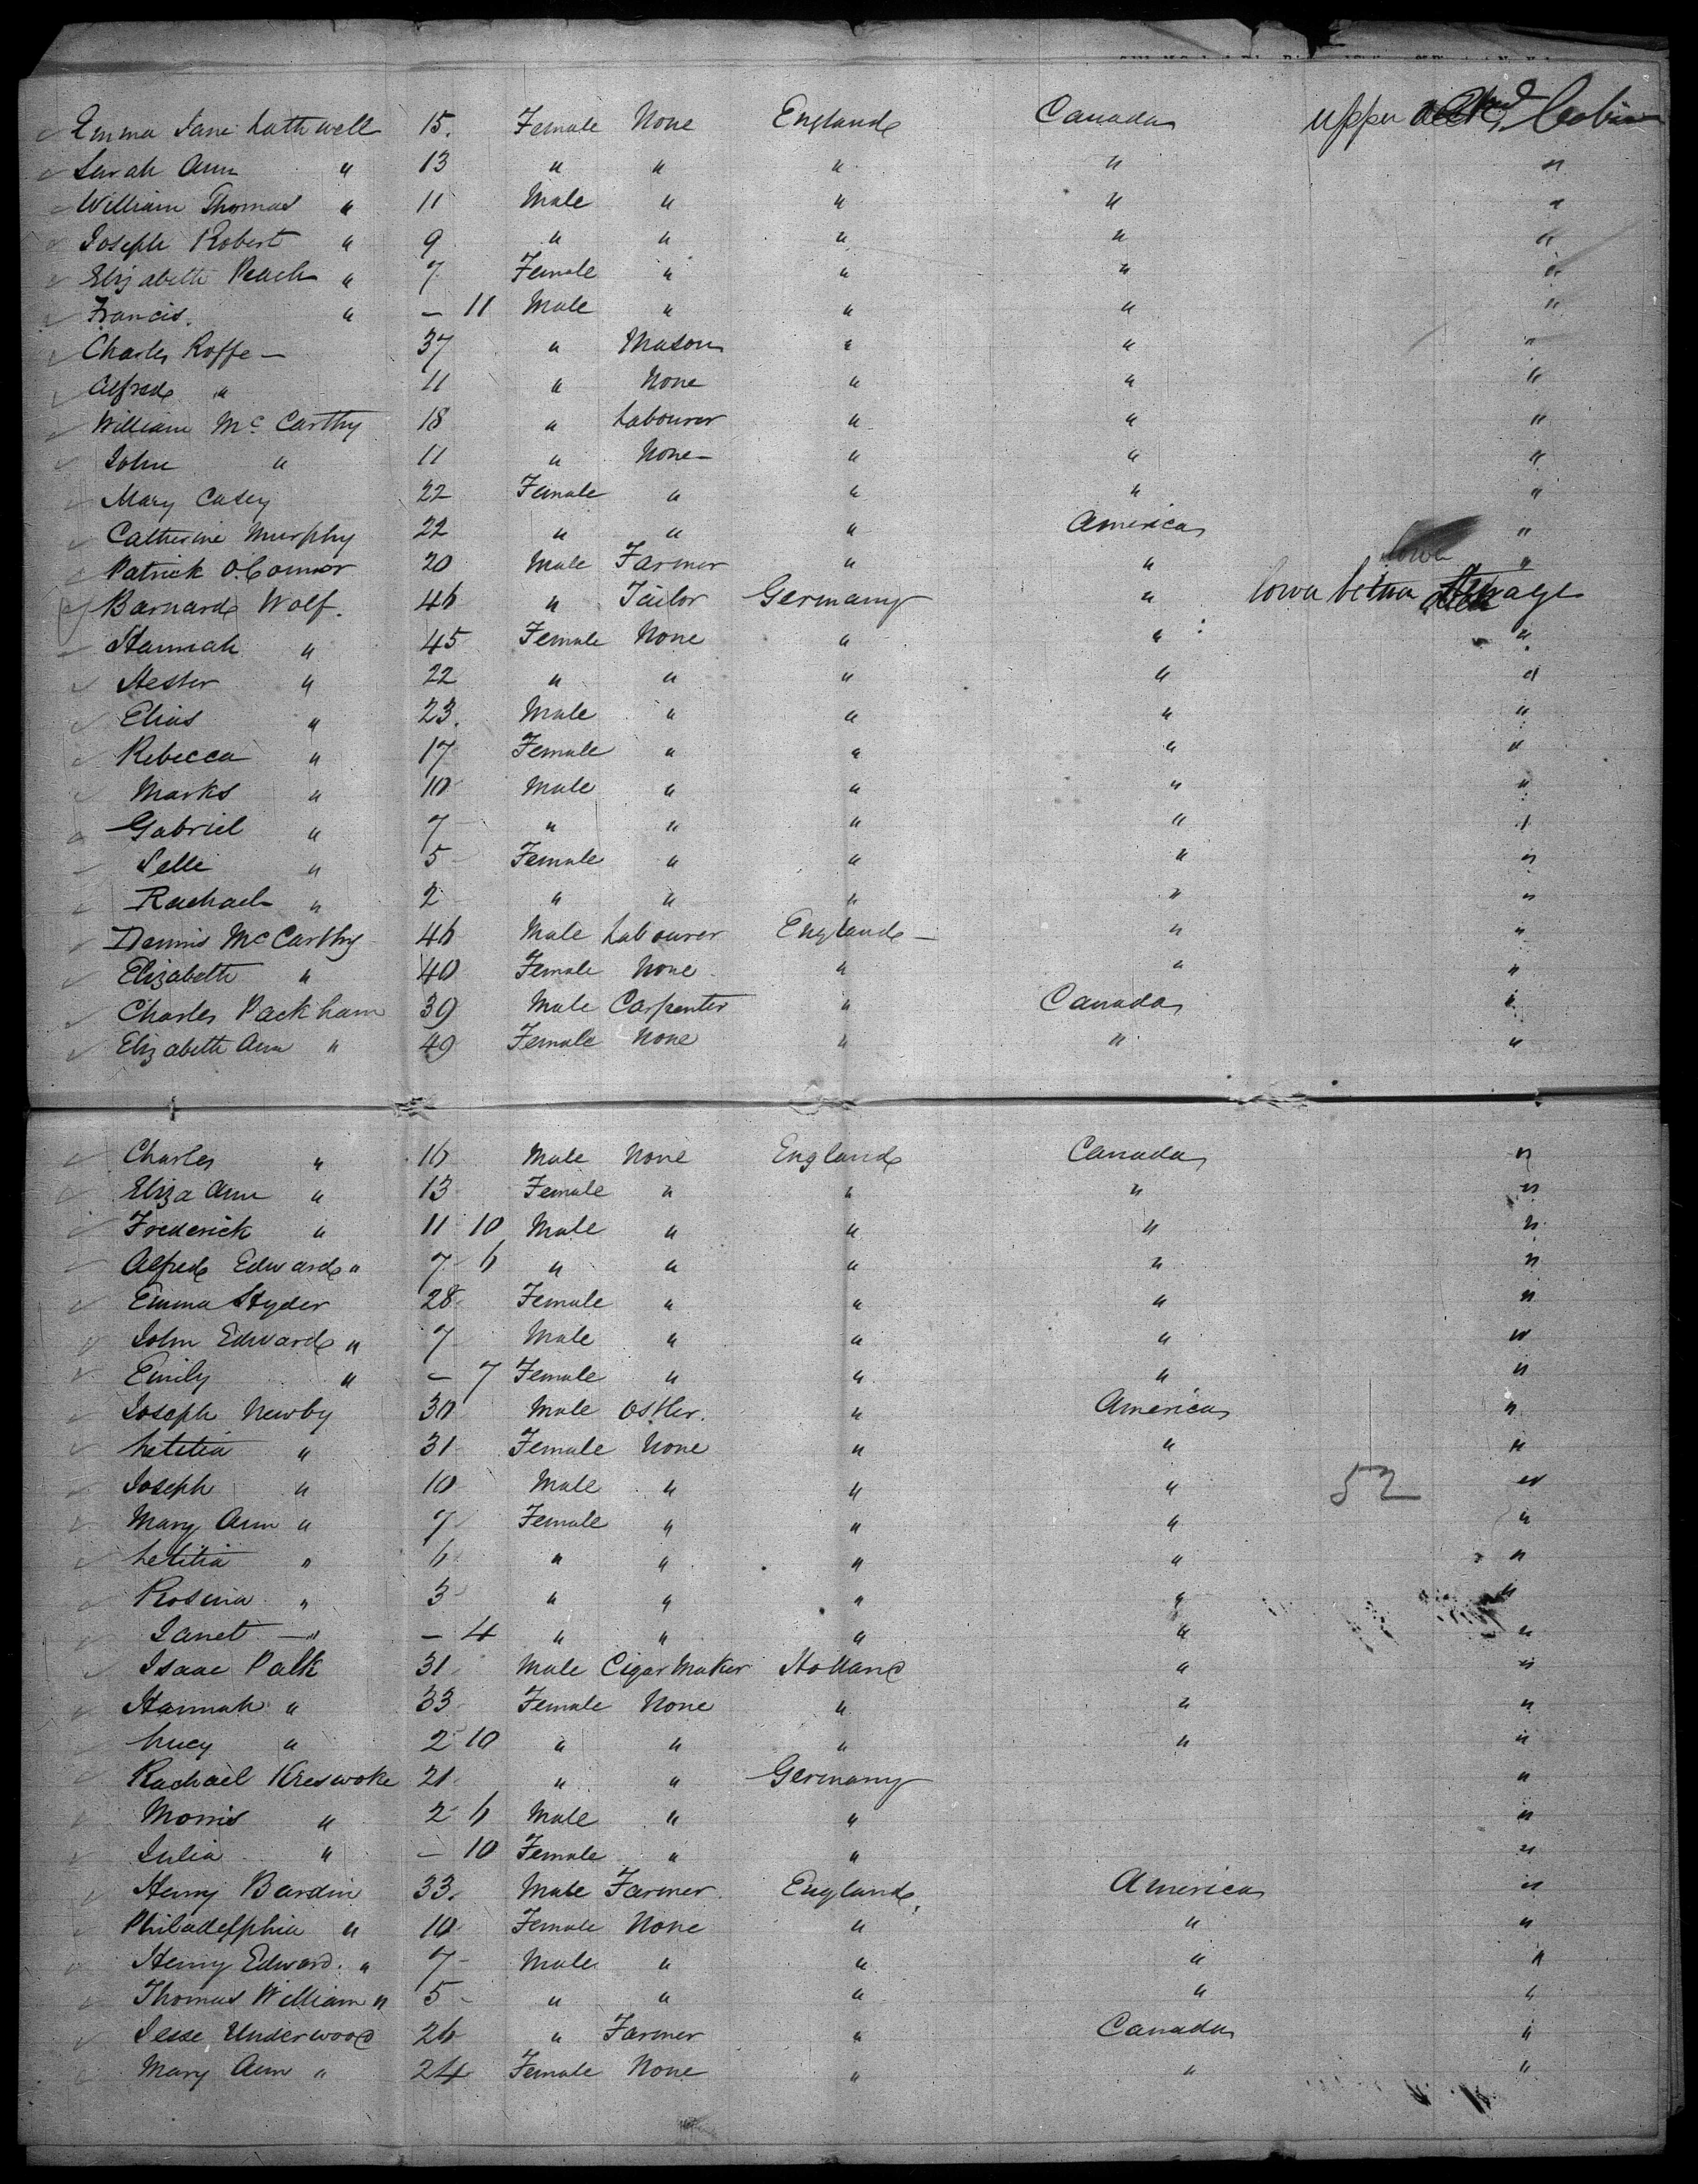 Emma Jane Lathwell 15. Female None England Canada upper deck, Cabin
Sarah Ann " 13 " " " " "
William Thomas " 11 Male " " " "
Joseph Robert " 9 " " " " "
Elizabeth Peach " 7 Female " " " "
Francis. " – 11 Male " " " "
Charles Roffe – 37 " Mason " " "
Alfred " 11 " None " " "
William Mc Carthy 18 " Labourer " " "
John " 11 " None – " " "
Mary Casey 22 Female " " " "
Catherine Murphy 22 " " " America "
Patrick O.Connor 20 Male Farmer " " "
Barnard Wolf. 46 " Tailor Germany " lower
Hannah " 45 Female None " " "
Hester " 22 " " " " "
Elias " 23. Male " " " "
Rebecca " 17 Female " " " "
Marks " 10 Male " " " "
Gabriel " 7 " " " " "
Selli " 5 Female " " " "
Rachael " 2 " " " " "
Dennis McCarthy 46 Male Labourer England – " "
Elizabeth " 40 Female None " " "
Charles Packham 39 Male Carpenter " Canada "
Elizabeth Ann " 49 Female None " " "
Charles " 16 Male None England Canada "
Eliza Ann " 13 Female " " " "
Frederick " 11 10 Male " " " "
Alfred Edward " 7 6 " " " " "
Emma Hyder 28 Female " " " "
John Edward " 7 Male " " " "
Emily " – 7 Female " " " "
Joseph Newby 30 Male Ostler. " America "
Letitia " 31 Female None " " "
Joseph " 10 Male " " " 52 "
Mary Ann " 7 Female " " " "
Letitia " 6 " " " " "
Rosina " 3 " " " " "
Janet – " – 4 " " " " "
Isaac Palk 31 Male Cigar Maker Holland " "
Hannah " 33 Female None " " "
Lucy " 2 10 " " " " "
Rachael Kreswoke 21 " " Germany "
Morris " 2 6 Male " " "
Julia " – 10 Female " " "
Henry Bardin 33. Male Farmer England, America "
Philadelphia " 10 Female None " " "
Henry Edward. " 7 Male " " " "
Thomas William " 5 " " " " "
Jesse Underwood 26 " Farmer " Canada "
Mary Ann " 24 Female None " " "